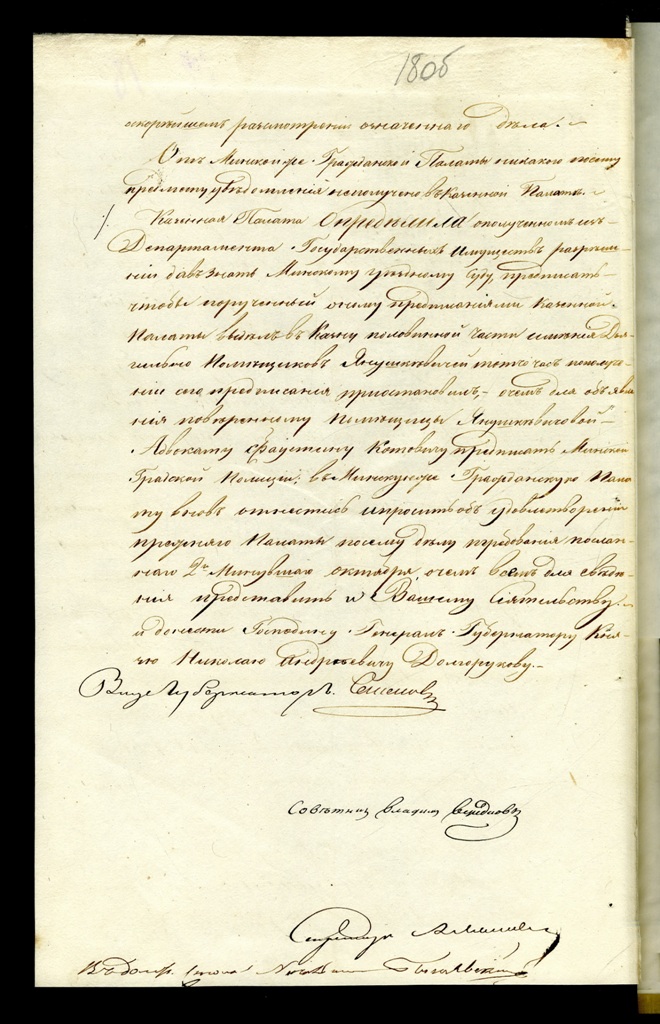 180б
скорѣйшемъ разсмотреніи означеннаго дѣла.
Отъ Минской же Гражданской Палаты никакого посему
предмѣту увѣдомленія неполучено въ Казенной Палатѣ.
Казенная Палата Опредѣлила ополученномъ изъ
Департамента Государственныхъ Имуществъ разрѣше-
ніи дать знать Минскому уѣздному суду, предписать
чтобы порученный оному предписаніями Казенной
Палаты въ Казну половинной части имѣнія Дя-
гильно Помѣщиковъ Янушкевичей тотъ часъ пополуче-
ніи сего предписанія пріостановилъ, очемъ для объявле-
нія повѣренному помѣщицы Янушкевичовой
Адвокату Фаустину Котовичу предписать Минской
Градской Полиціи; въ Минскую же Гражданскую Пала-
ту вновь отнестись ипросить объ удовлетвореніи
прежняго Палаты посему дѣлу требованія послан-
наго 2го Минувшаго октября, очемъ всемъ для свѣдѣ-
нія представить и Вашему Сіятельству.
и донести Господину Генералъ Губернатору Кня-
зю Николаю Андреевичу Долгорукову.
Вице Губернаторъ
Совѣтник Владим
Секретарь